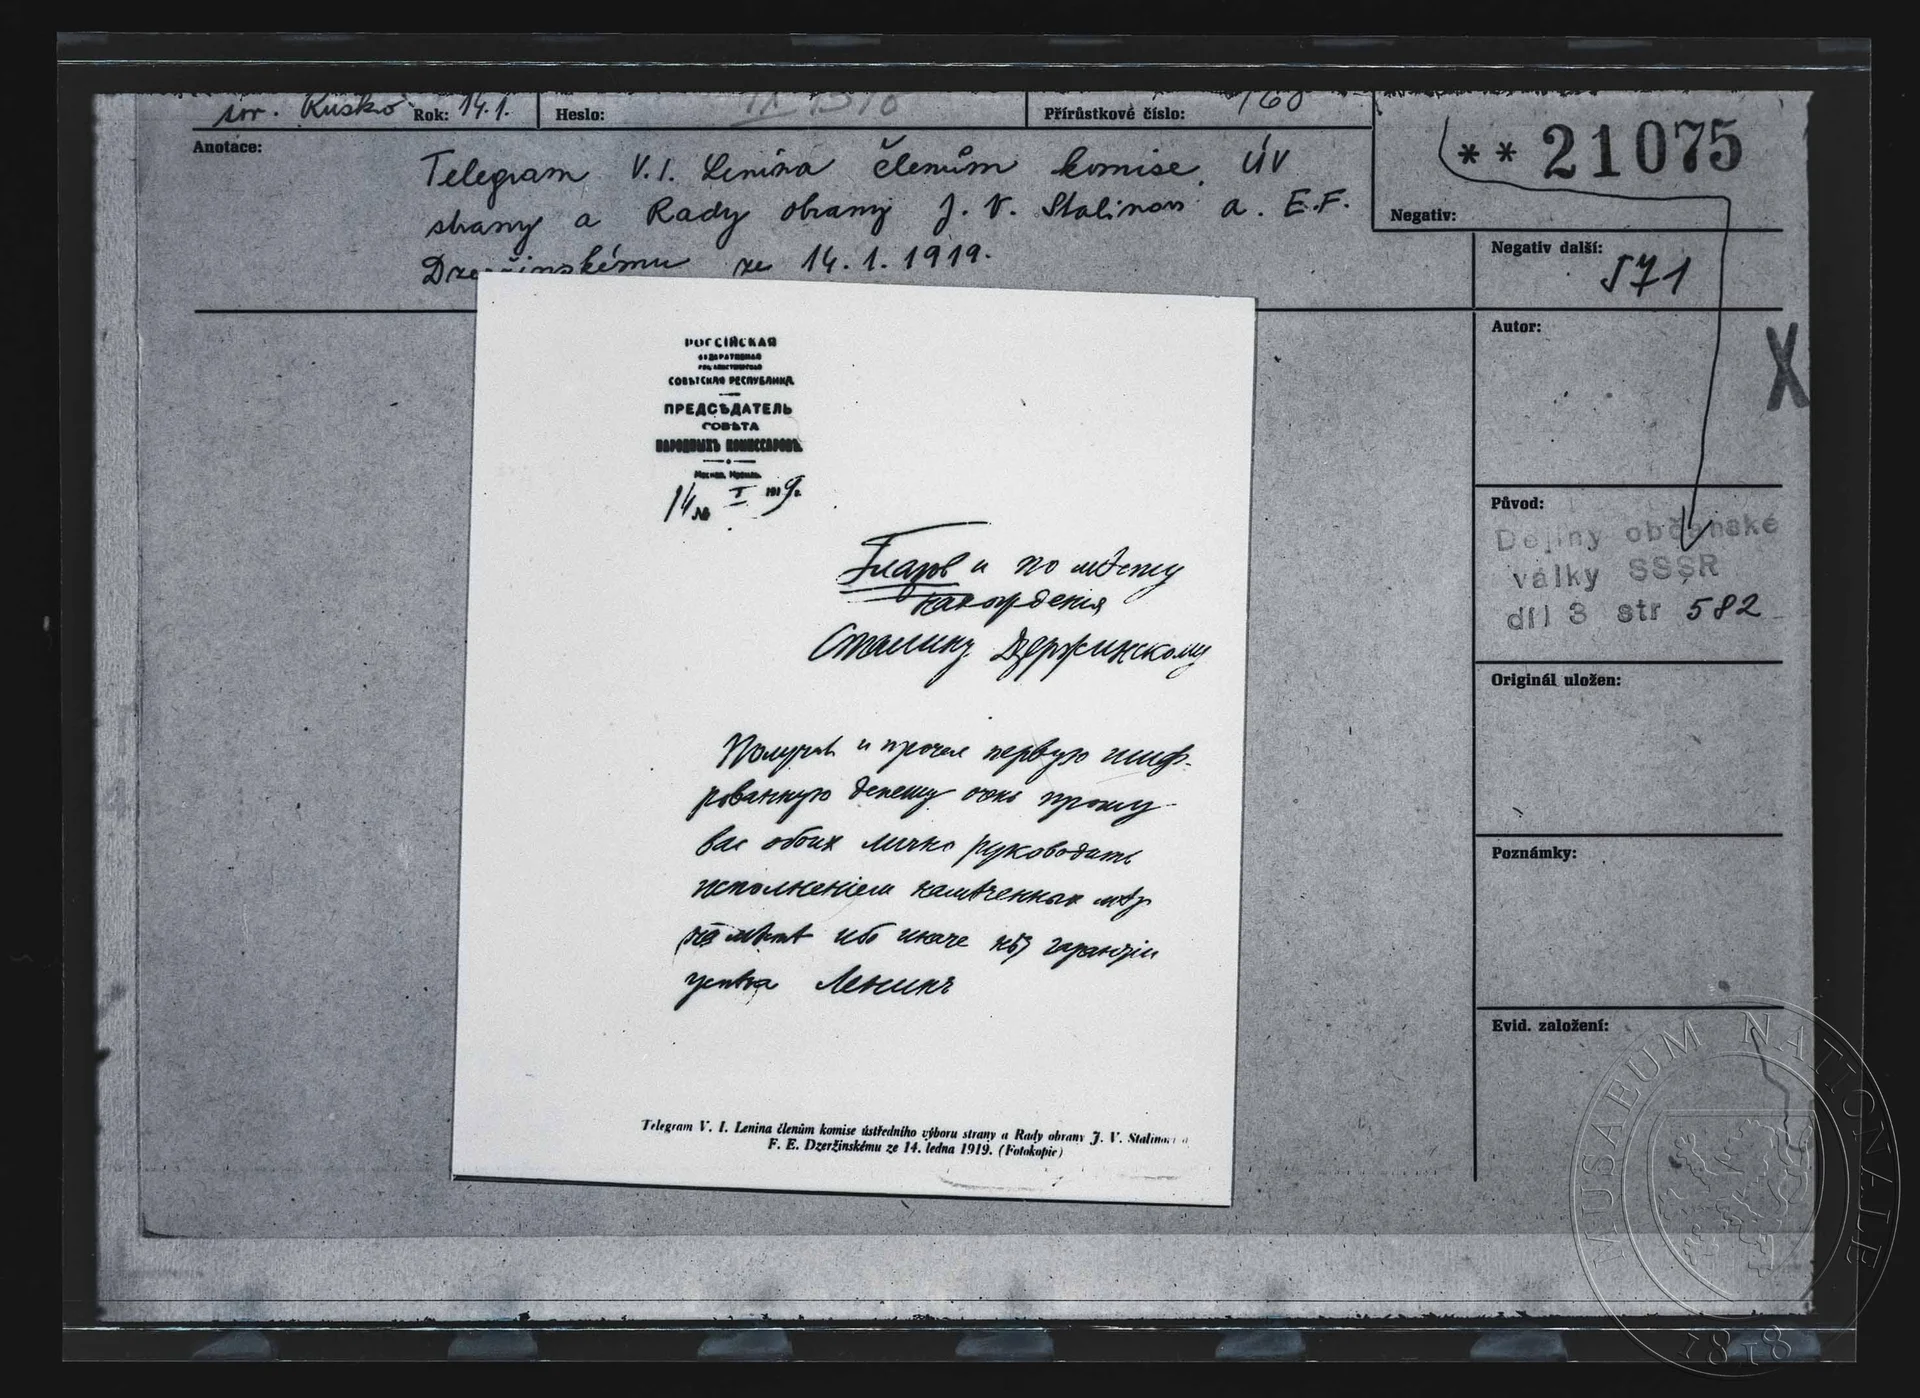 sov. Rusko Rok: 14.1. Heslo: Přírůstkové číslo: 760
** 21075
Negativ:
Anotace:
Telegram V. I. Lenina členům komise ÚV
strany a Rady obrany J. V. Stalinovi a E. F.
Dzeržinskému ze 14. 1. 1919.
Negativ další:
571
Autor:
X
Původ:
Dějiny občanské
války SSSR
díl 3 str 582
Originál uložen:
Poznámky:
Evid. založení:
РОССІЙСКАЯ
СОВѢТСКАЯ РЕСПУБЛИКА
ПРЕДСѢДАТЕЛЬ
СОВѢТА
НАРОДНЫХЪ КОМИССАРОВЪ.
Москва, Кремль.
14 I 1919 г.
№
Глазов и по мѣсту
нахождения
Сталину Дзержинскому
Получил и прочел первую шиф-
рованную депешу очень прошу
вас обоих лично руководить
исполненіем намѣченных мѣр
на мѣстѣ ибо иначе нѣт гарантіи
успѣха Ленинъ
Telegram V. I. Lenina členům komise ústředního výboru strany a Rady obrany J. V. Stalinovi a
F. E. Dzeržinskému ze 14. ledna 1919. (Fotokopie)
MUSAEUM NATIONALE
1818